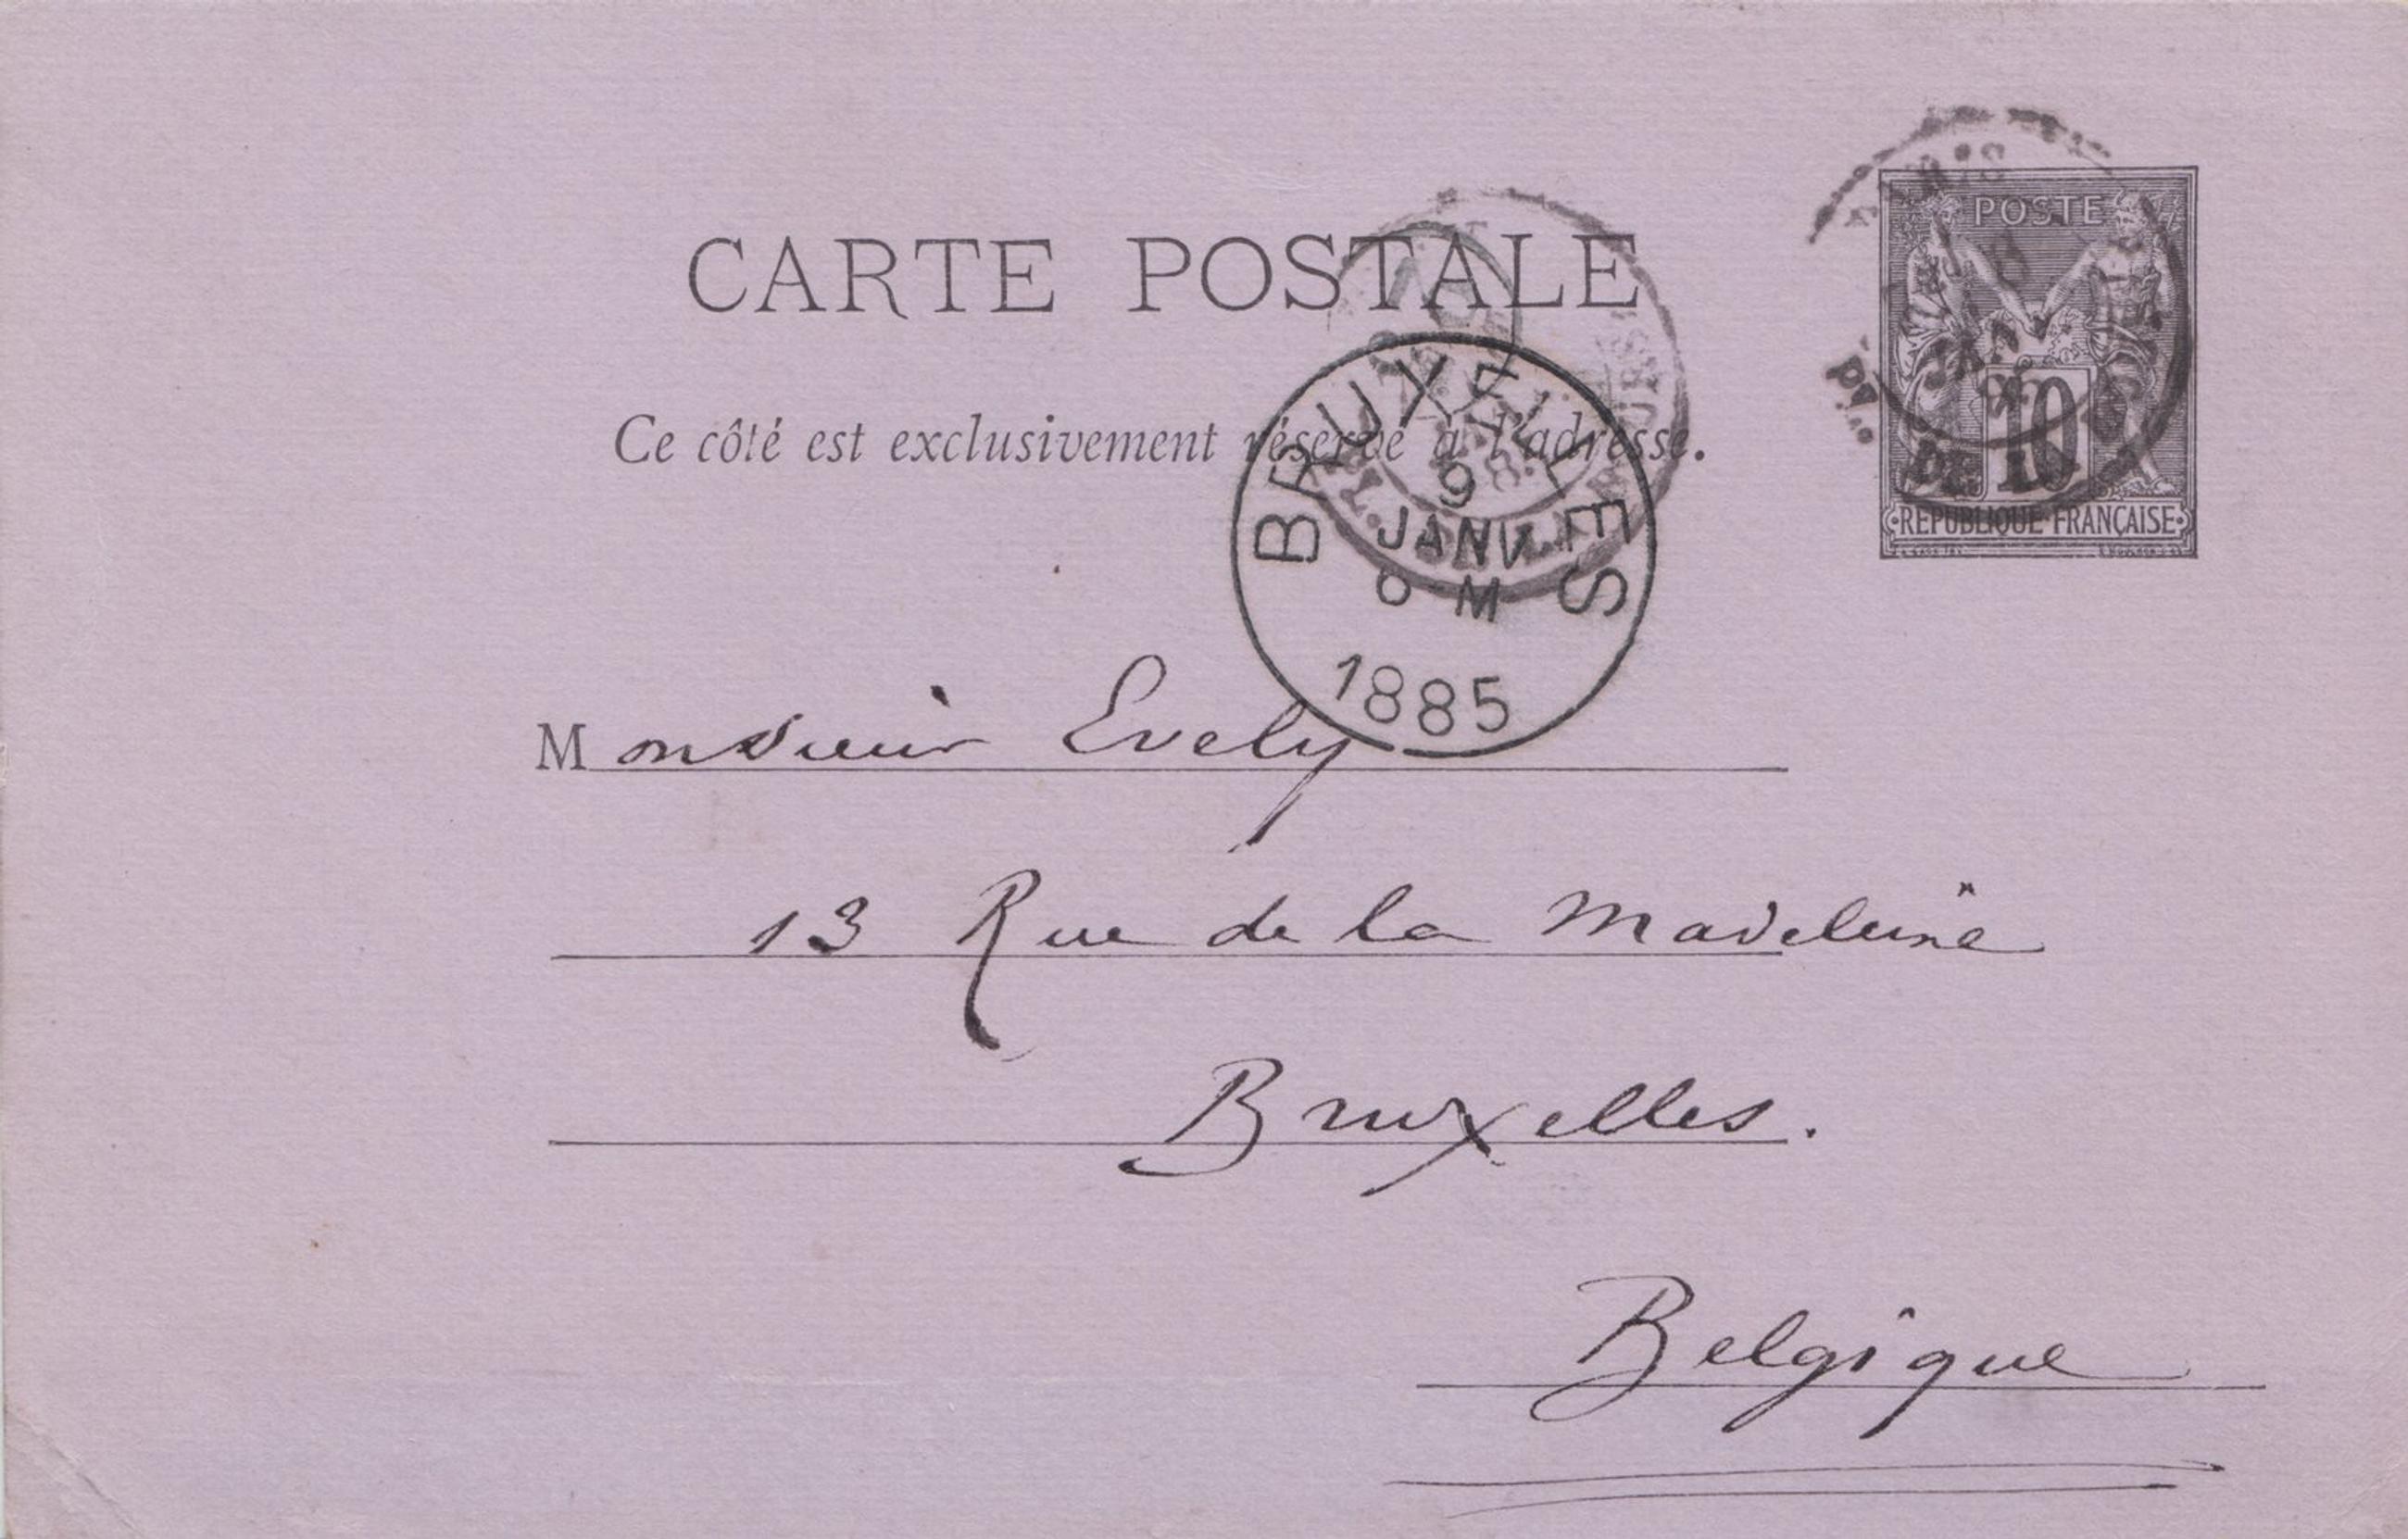 POSTE
10
REPUBLIQUE FRANÇAISE
CARTE POSTALE
Ce côté est exclusivement réservé à l'adresse.
BRUXELLES
9
JANV
6 M
1885
Monsieur Evely
13 Rue de la Madeleine
Bruxelles.
Belgique